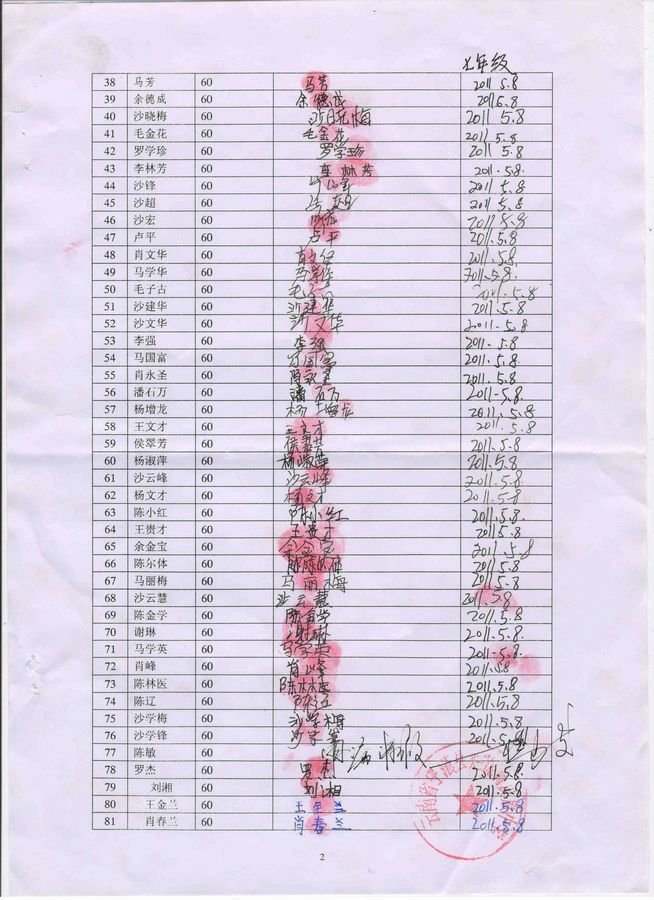 七年级
38 马芳 60 马芳 2011.5.8
39 余德成 60 余德成 2011.5.8
40 沙晓梅 60 沙晓梅 2011.5.8
41 毛金花 60 毛金花 2011.5.8
42 罗学珍 60 罗学珍 2011.5.8
43 李林芳 60 李林芳 2011.5.8
44 沙锋 60 2011.5.8
45 沙超 60 2011.5.8
46 沙宏 60 2011.5.8
47 卢平 60 卢平 2011.5.8
48 肖文华 60 2011.5.8
49 马学华 60 马学华 2011.5.8
50 毛子古 60 2011.5.8
51 沙建华 60 沙建华 2011.5.8
52 沙文华 60 沙文华 2011.5.8
53 李强 60 李强 2011.5.8
54 马国富 60 马国富 2011.5.8
55 肖永圣 60 2011.5.8
56 潘石万 60 潘石万 2011.5.8
57 杨增龙 60 杨增龙 2011.5.8
58 王文才 60 王文才 2011.5.8
59 侯翠芳 60 2011.5.8
60 杨淑萍 60 杨淑萍 2011.5.8
61 沙云峰 60 沙云峰 2011.5.8
62 杨文才 60 杨文才 2011.5.8
63 陈小红 60 陈小红 2011.5.8
64 王贵才 60 王贵才 2011.5.8
65 余金宝 60 余金宝 2011.5.8
66 陈尔体 60 2011.5.8
67 马丽梅 60 马丽梅 2011.5.8
68 沙云慧 60 沙云慧 2011.5.8
69 陈金学 60 陈金学 2011.5.8
70 谢琳 60 谢琳 2011.5.8
71 马学英 60 马学英 2011.5.8
72 肖峰 60 肖峰 2011.5.8
73 陈林医 60 陈林医 2011.5.8
74 陈辽 60 陈辽 2011.5.8
75 沙学梅 60 沙学梅 2011.5.8
76 沙学锋 60 2011.5.8
77 陈敏 60
78 罗杰 60 罗杰 2011.5.8
79 刘湘 60 刘湘 2011.5.8
80 王金兰 60 王金兰 2011.5.8
81 肖春兰 60 肖春兰 2011.5.8
云南省宁蒗
2